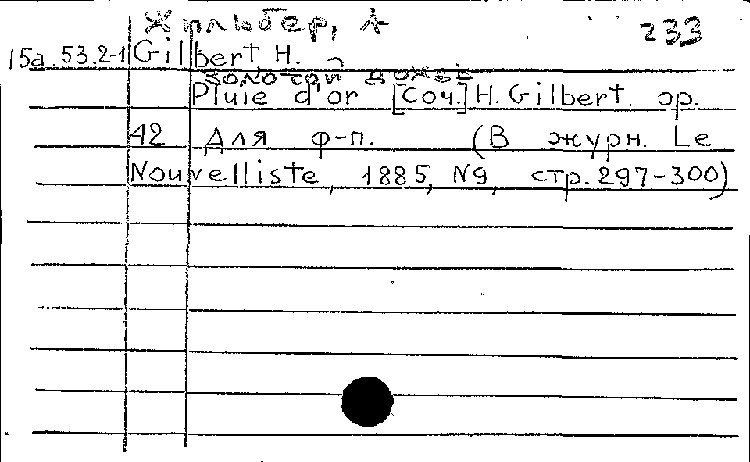 Жильбер, А
233
15а.53.2-1 Gilbert H.
золотой дождь
Pluie d'or [Соч.] H. Gilbert op.
42 Для ф-п. (В журн. Le
Nouvelliste, 1885, N9, стр. 297-300)